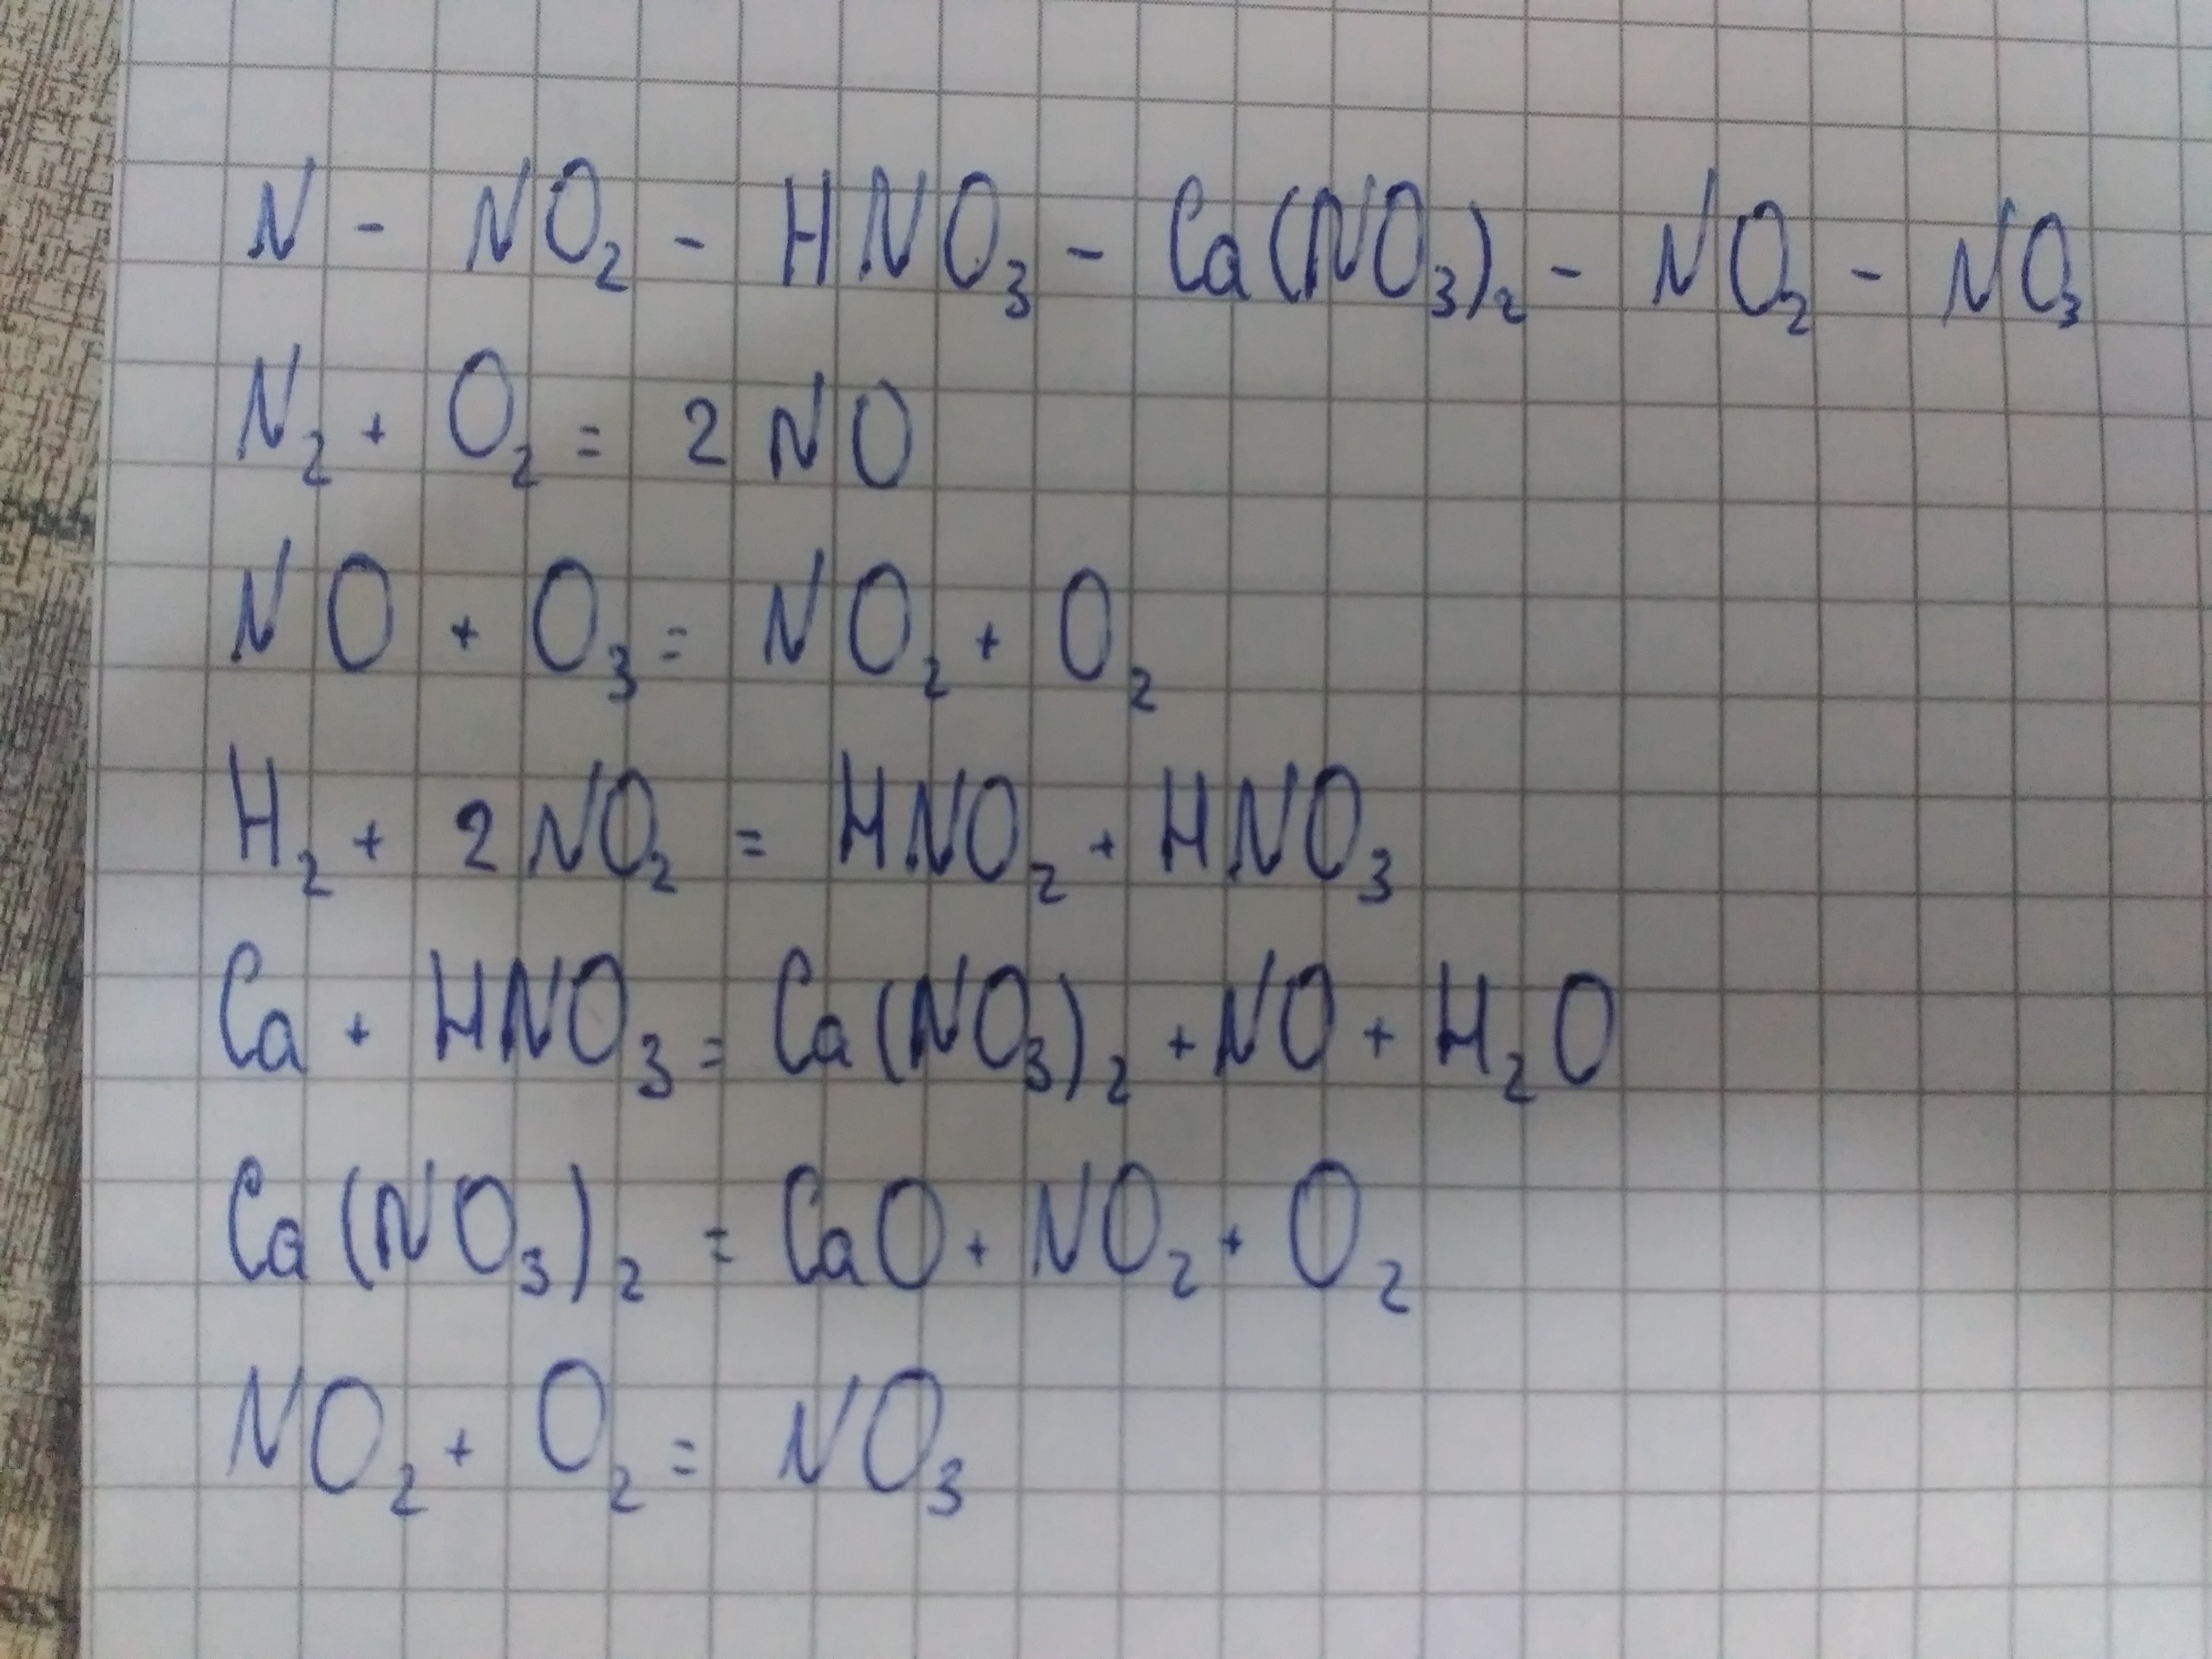 N - NO₂ - HNO₃ - Ca(NO₃)₂ - NO₂ - NO₃
N₂ + O₂ = 2NO
NO + O₃ = NO₂ + O₂
H₂ + 2NO₂ = HNO₂ + HNO₃
Ca + HNO₃ = Ca(NO₃)₂ + NO + H₂O
Ca(NO₃)₂ = CaO + NO₂ + O₂
NO₂ + O₂ = NO₃